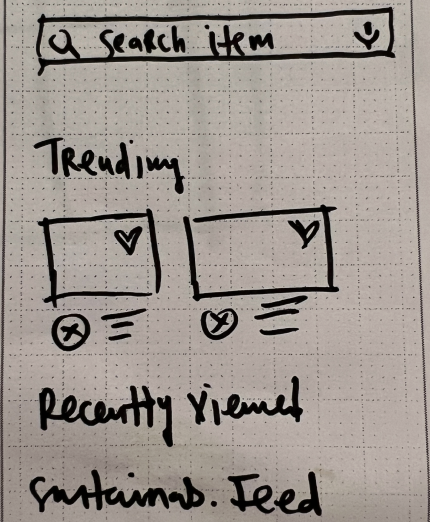 search item
Trending
Recently viewed
Sustainab. Feed